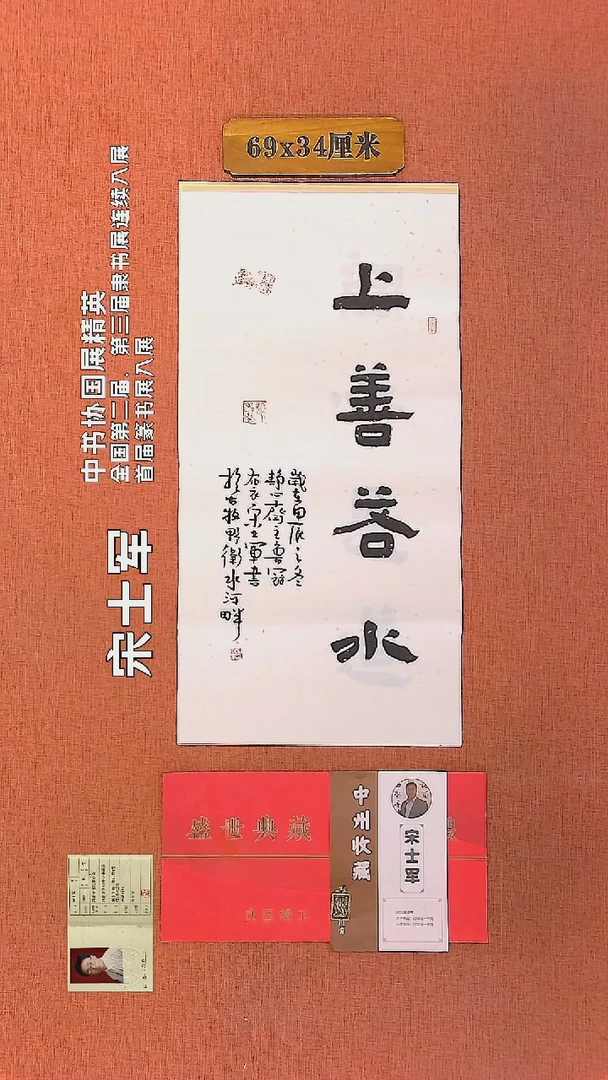 69x34厘米
上善若水
歲在甲辰之冬
布衣宋士軍書
於古牧野衛水河畔
中书协国展精英
全国第二届、第三届隶书展连续入展
首届篆书展入展
宋士军
盛世典藏
中州收藏
宋士军